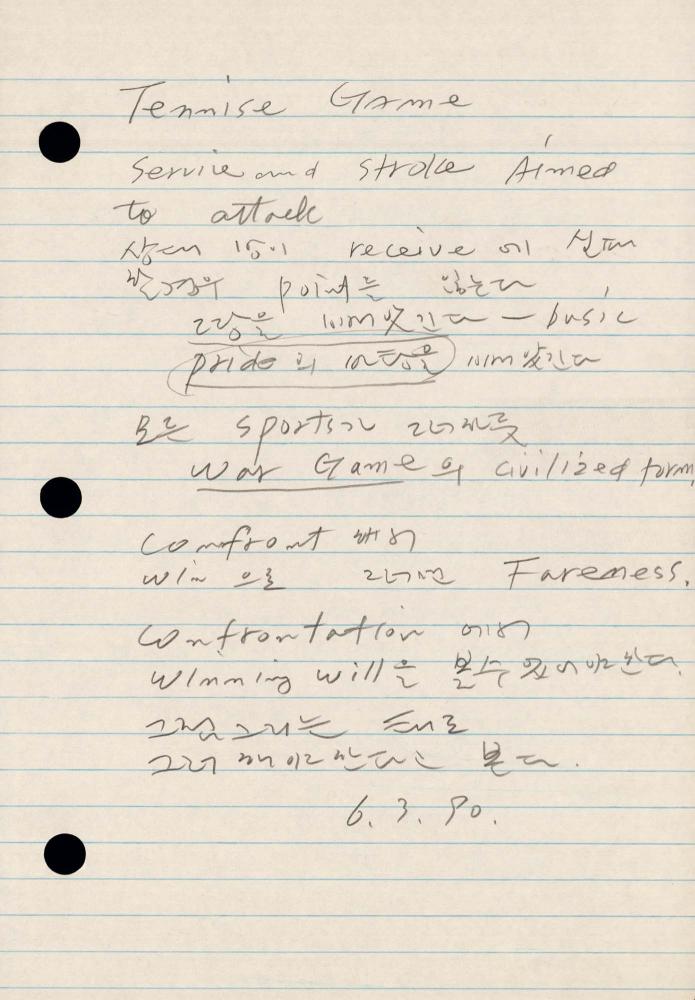 Tennise Game
Service and stroke Aimed
to attack
상대방이 receive에 실패
할경우 point를 잃는다
빼앗긴다 — basic
pride의 바탕을 빼앗긴다
모든 sports가 그러하듯
War Game의 civilized form,
Comfront 해서
Win 으로 그러면 Fareness.
Confrontation 에서
Winning will을 볼수 있어야 한다.
그림그리는 태도
그러해야 한다고 본다.
6. 3. 90.